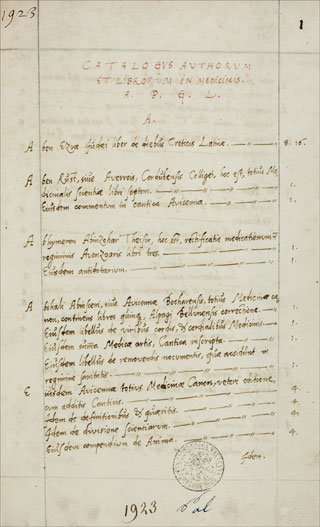 1923
1
CATALOGUS AUTHORUM
ET LIBRORUM IN MEDICINIS.
A. P. G. L.
A.
A ben Ezra Judei liber de diebus Creticis Latine. 8. 16.
A ben Rust, sive Averrois, Cordubensis Colliget, hoc est, totius Me
dicinalis scientiæ libri septem. 1.
Eiusdem commentum in cantica Avicennæ. 1.
A Theisir, hoc est, rectificatio medicationum et
regiminis Avenzoaris libri tres. 1.
Eiusdem antidotarium. 1.
A sive Avicennæ totius Medicinæ ca
non, continens libros quinq, Alpagi Bellunensis correctione. 1.
Eiusdem libellus de viribus cordis, 1.
Eiusdem Medicæ artis, Cantica inscripta. 1.
Eiusdem libellus de removendis nocumentis, quæ accidunt in
regimine sanitatis. 1.
Eiusdem Avicennæ totius Medicinæ Canon, veteri editione,
cum additis Canticis. 4.
Idem de definitionibus & quæsitis. 4.
Idem de divisione scientiarum. 4.
Eiusdem compendium de Anima. 4.
1923